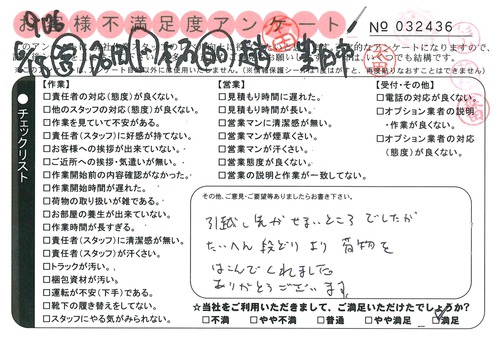 お客様不満足度アンケート
No 032436
チェックリスト
【作業】
□責任者の対応(態度)が良くない。
□他のスタッフの対応(態度)が良くない。
□作業を見ていて不安がある。
□責任者(スタッフ)に好感が持てない。
□お客様への挨拶が出来ていない。
□ご近所への挨拶・気遣いが無い。
□作業開始前の内容確認がなかった。
□作業開始時間が遅れた。
□荷物の取り扱いが雑である。
□お部屋の養生が出来ていない。
□作業時間が長すぎる。
□責任者(スタッフ)に清潔感が無い。
□責任者(スタッフ)が汗くさい。
□トラックが汚い。
□梱包資材が汚い。
□運転が不安(下手)である。
□靴下の履き替えをしてない。
□スタッフにやる気がみられない。
【営業】
□見積もり時間に遅れた。
□見積もり時間が長い。
□営業マンに清潔感が無い。
□営業マンが煙草くさい。
□営業マンが汗くさい。
□営業態度が良くない。
□営業の説明と作業が一致してない。
【受付・その他】
□電話の対応が良くない。
□オプション業者の説明
・作業が良くない。
□オプション業者の対応
(態度)が良くない。
その他、ご意見・ご要望等ありましたらお書き下さい。
引越し先が せまいところ でしたが
たいへん 段どり よ�り 荷物を
はこんでくれました
ありがとうございます
☆当社をご利用いただきまして、ご満足いただけたでしょうか?
□不満 □やや不満 □普通 □やや満足 □満足